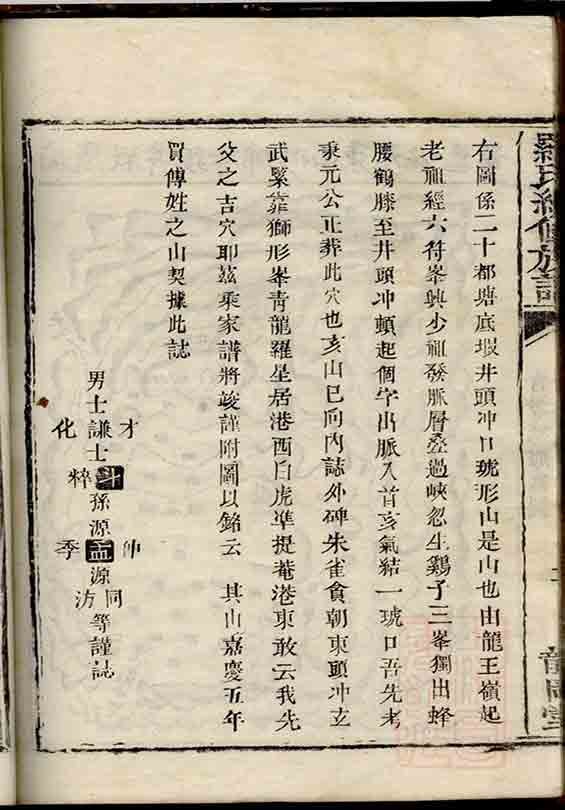 羅氏續修族譜
右圖係二十都塘底塅井頭冲口琥形山是山也由龍王嶺起
老祖經六符峯興少祖發脈層叠過峽忽生鷄子三峯獨出蜂
腰鶴膝至井頭冲頓起個字出脈入首亥氣結一琥口吾先考
秉元公正葬此穴也亥山巳向內誌外碑朱雀食朝東頭冲玄
武緊靠獅形峯青龍羅星居港西白虎凖提菴港東敢云我先
父之吉穴耶茲乘家譜將竣謹附圖以銘云 其山嘉慶五年
買傅姓之山契據此誌
男士謙士才斗粹化孫源仲孟季源同汸等謹誌